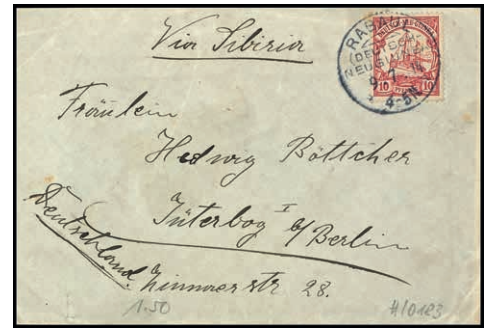 Via Sibiria
RABAUL
DEUTSCH-
NEUGUINEA
9 7
4-5N
10 10
Fräulein
Hedwig Böttcher
Jüterbog I b/Berlin
Deutschland.
Zinnaer str 28.
1.50